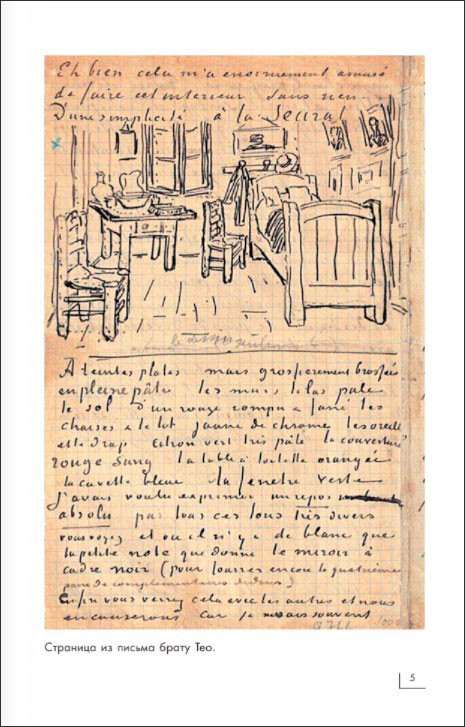 Eh bien cela m'a enormement amusé
de faire cet interieur sans rien
D'une simplicité à la Seurat
A teintes plates mais grossierement brossées
en pleine pâte les murs lilas pale
le sol d'un rouge rompu & fané les
chaises & le lit jaune de chrome les oreill
et le drap citron vert très pâle la couverture
rouge sang la table à toilette orangée
la cuvette bleue la fenetre verte
J'avais voulu exprimer un repos
absolu par tous ces tons très divers
vous voyez et où il n'y a de blanc que
la petite note que donne le miroir à
cadre noir (pour fourrer encore la quatrième
paire de complementaires dedans)
Enfin vous verrez cela avec les autres et nous
en causerons car je ne sais souvent
Страница из письма брату Тео.
5